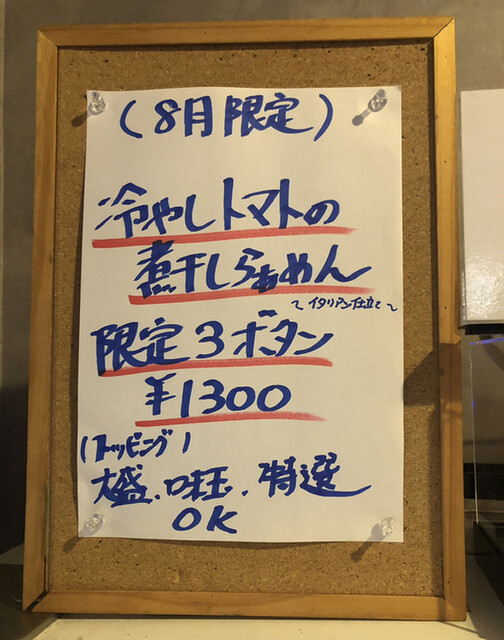 (8月限定)
冷やしトマトの
煮干しらぁめん
~イタリアン仕立て~
限定3ボタン
¥1300
(トッピング)
大盛、味玉、特選
OK